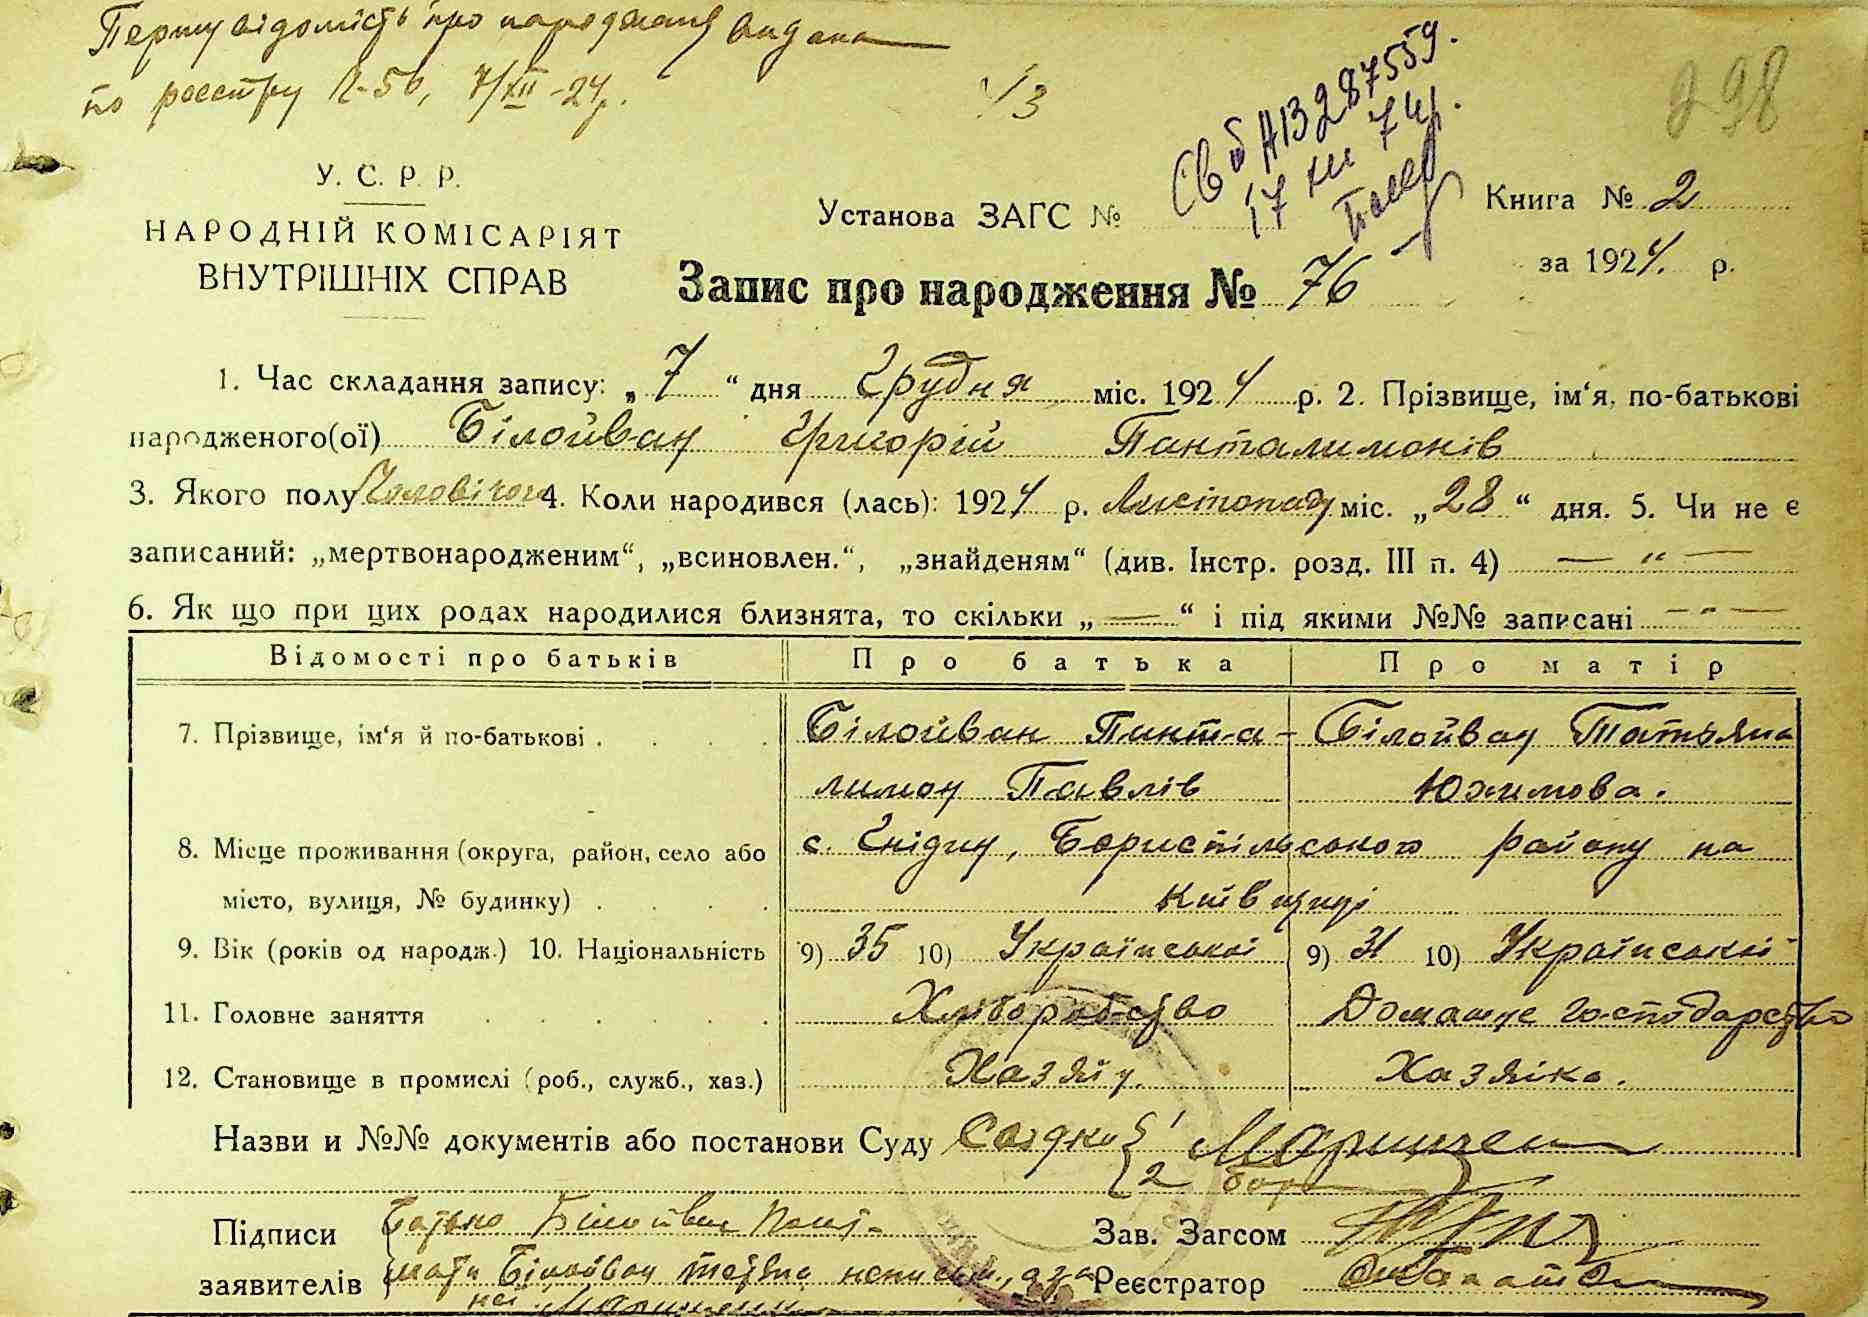 Першу відомість про народження видана
по реєстру №-56, 7/XII-24р.
13
298
Св б
17 74р.
У. С. Р. Р.
НАРОДНІЙ КОМІСАРІЯТ
ВНУТРІШНІХ СПРАВ
Установа ЗАГС №
Книга № 2
за 1924. р.
Запис про народження № 76
1. Час складання запису: „7“ дня Грудня міс. 1924 р. 2. Прізвище, ім‘я, по-батькові
народженого(ої) Білойван Григорій Панталимонів
3. Якого полу Чоловічого 4. Коли народився (лась): 1924 р. Листопаду міс. „28“ дня. 5. Чи не є
записаний: „мертвонародженим“, „всиновлен.“, „знайденям“ (див. Інстр. розд. III п. 4) — „ —
6. Як що при цих родах народилися близнята, то скільки „—“ і під якими №№ записані — " —
Відомості про батьків Про батька Про матір
7. Прізвище, ім‘я й по-батькові . . . . Білойван Панта- Білойван Татьяна
лимон Павлів Юхимова.
8. Місце проживання (округа, район, село або с. Гнідин, Бориспільського району на
місто, вулиця, № будинку) . . . . Київщині
9. Вік (років од народж.) 10. Національність 9) 35 10) Української 9) 31 10) Української
11. Головне заняття . . . . . . Хліборобство Домашнє господарство
12. Становище в промислі (роб., служб., хаз.) Хазяїн. Хазяїка.
Назви и №№ документів або постанови Суду Свідки { 1
2
Підписи Батько Білойван Пант- Зав. Загсом
заявителів мати Білойван неписьм., за Реєстратор
неї